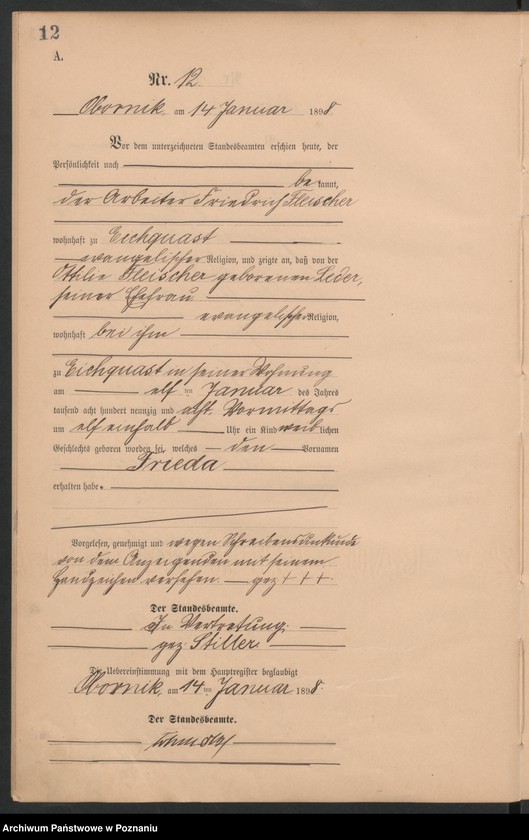 12
A.
Nr. 12.
Obornik am 14 Januar 1898.
Vor dem unterzeichneten Standesbeamten erschien heute, der
Persönlichkeit nach
be kannt,
der Arbeiter Friedrich Fleischer
wohnhaft zu Eichquast
evangelischer Religion, und zeigte an, daß von der
Ottilie Fleischer geborenen Leder,
seiner Ehefrau
evangelischer Religion,
wohnhaft bei ihm
zu Eichquast in seiner Wohnung
am elf ten Januar des Jahres
tausend acht hundert neunzig und acht Vormittags
um elf einhalb Uhr ein Kind weib lichen
Geschlechts geboren worden sei, welches den Vornamen
Frieda
erhalten habe.
Vorgelesen, genehmigt und wegen Schreibensunkunde
von dem Anzeigenden mit seinem
Handzeichen versehen. gez + + +.
Der Standesbeamte.
In Vertretung.
gez. Stiller.
Die Uebereinstimmung mit dem Hauptregister beglaubigt
Obornik am 14 ten Januar 1898.
Der Standesbeamte.
Archiwum Państwowe w Poznaniu